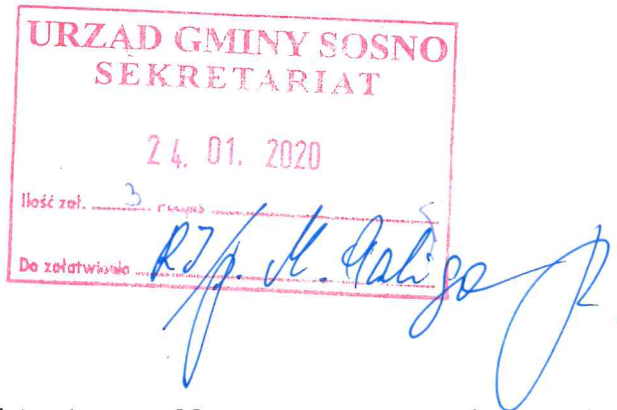 URZĄD GMINY SOSNO
SEKRETARIAT
24. 01. 2020
Ilość zał. 3 podpis
Do załatwienia RI/p. M.